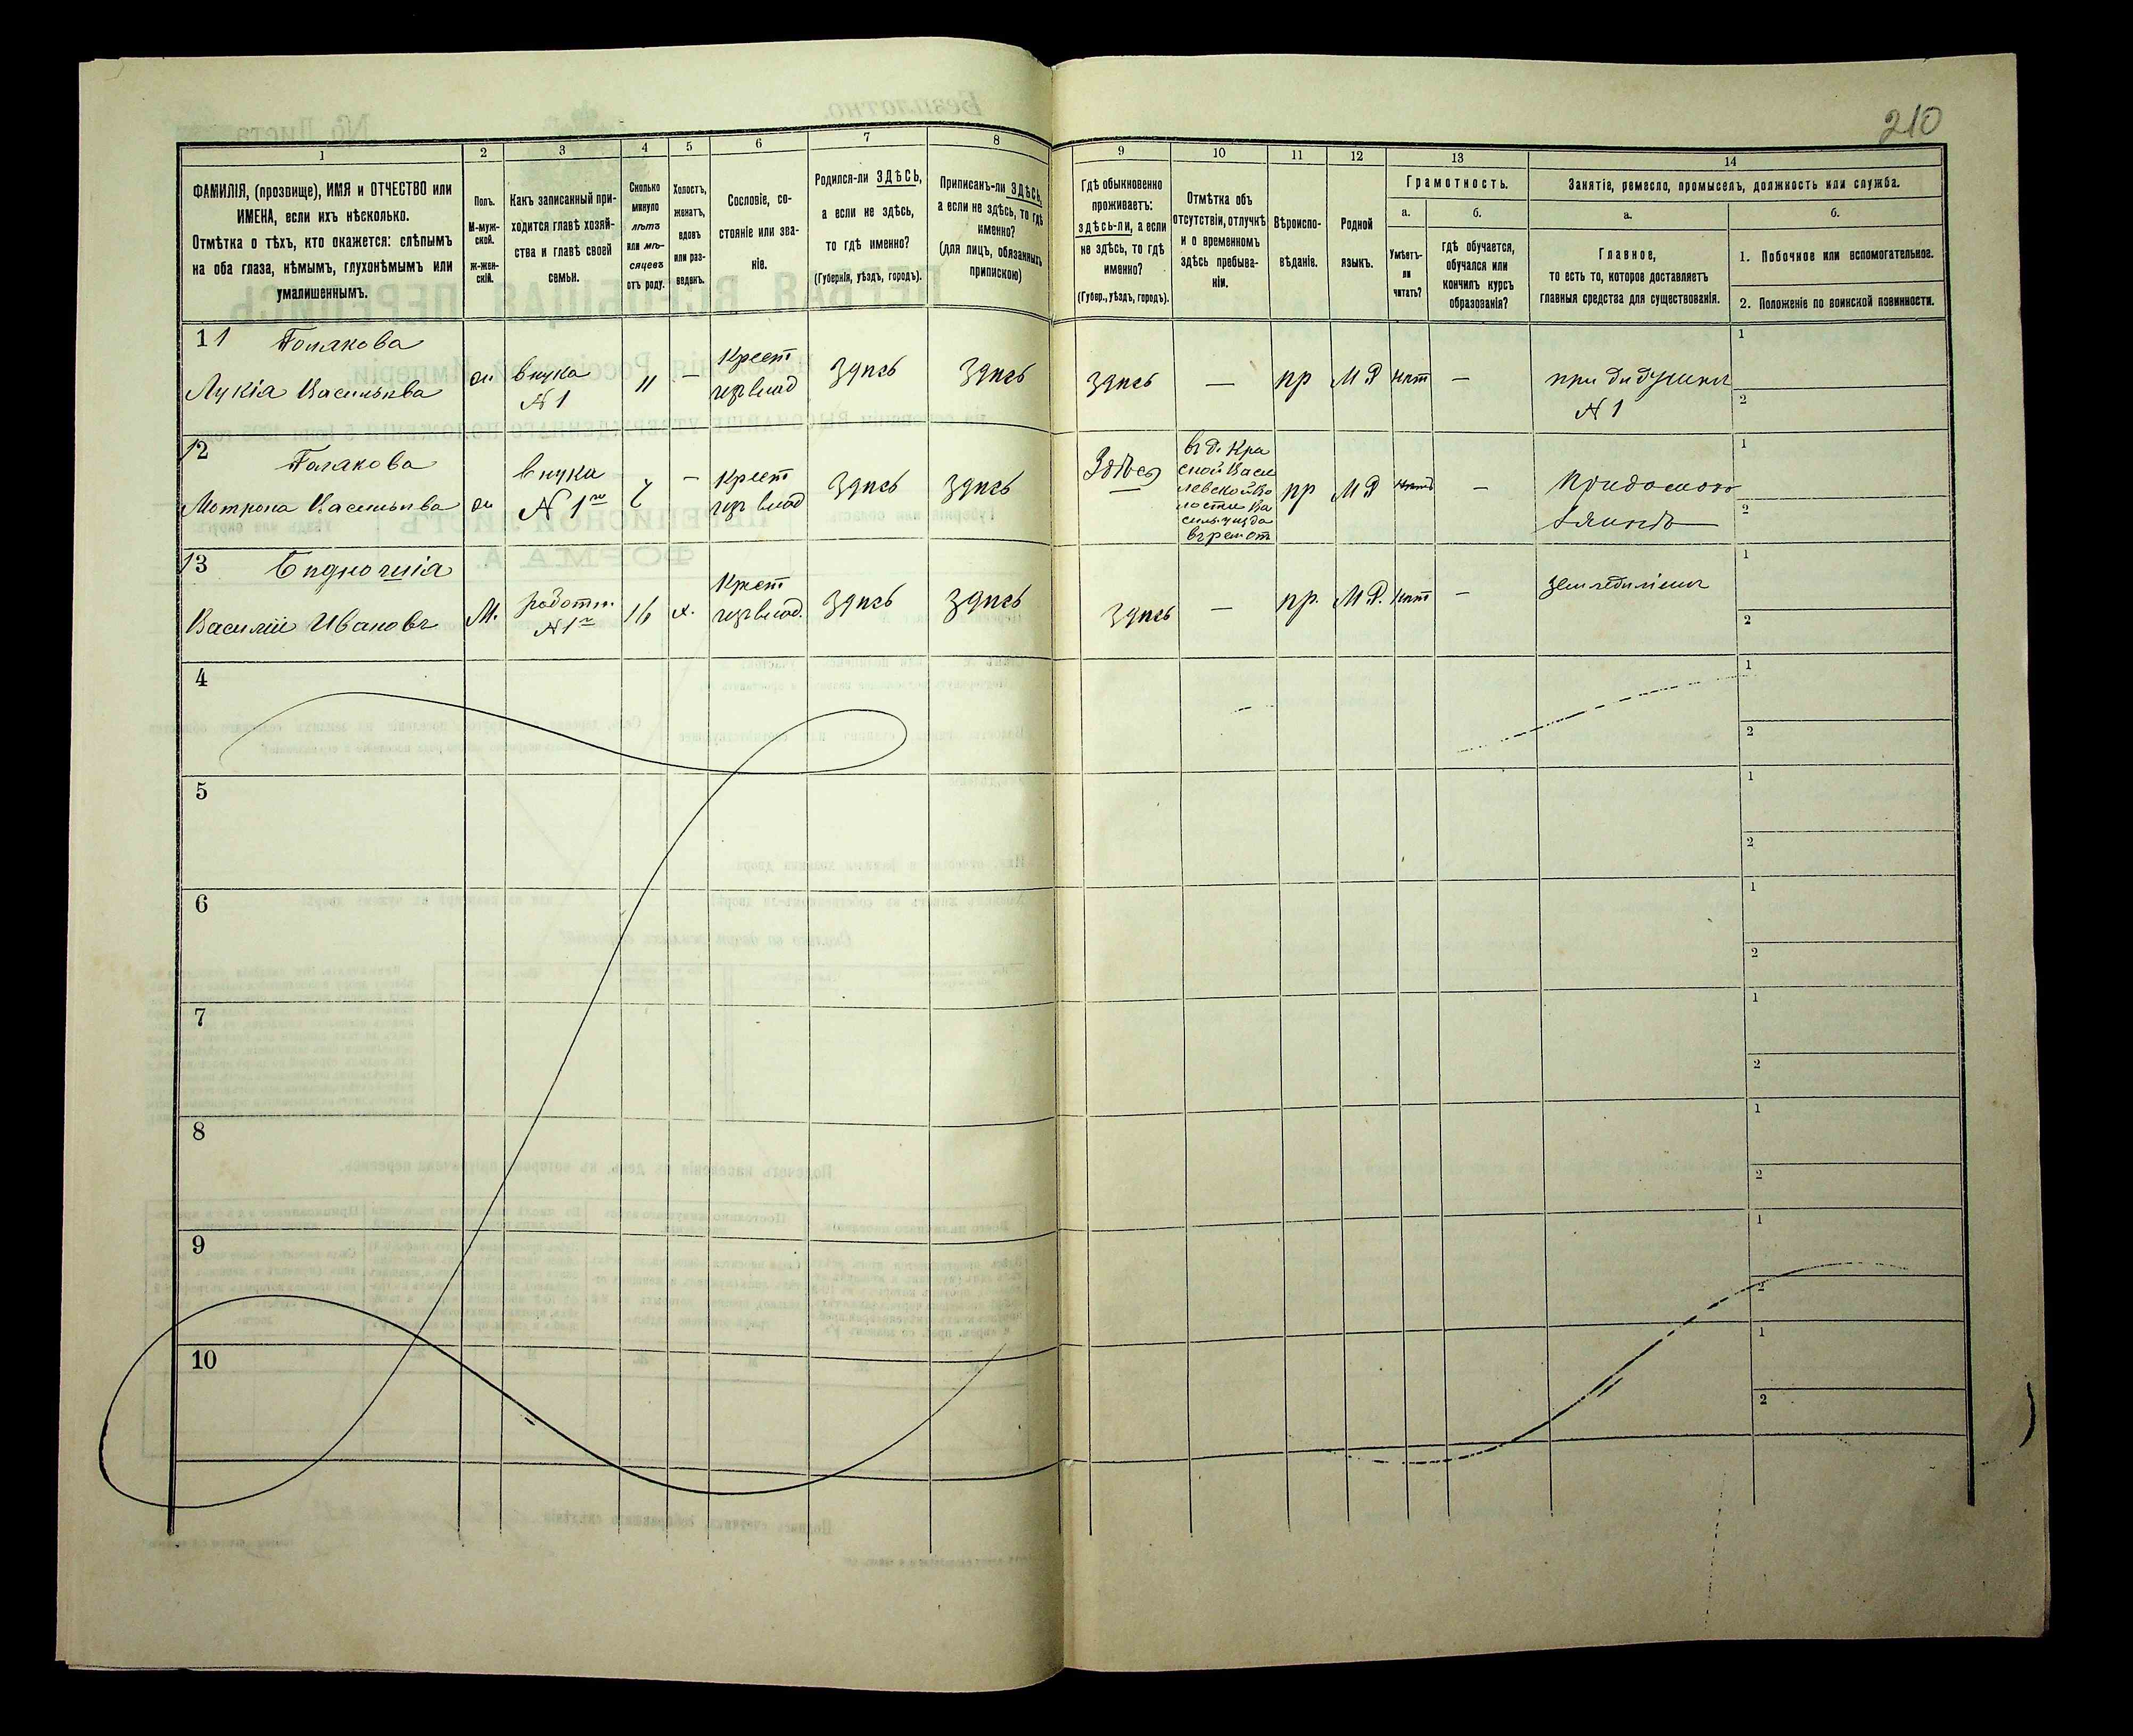 210
1
2
3
4
5
6
7
8
9
10
11
12
13
14
ФАМИЛІЯ, (прозвище), ИМЯ и ОТЧЕСТВО или
ИМЕНА, если ихъ нѣсколько.
Отмѣтка о тѣхъ, кто окажется: слѣпымъ
на оба глаза, нѣмымъ, глухонѣмымъ или
умалишеннымъ.
Полъ.
М-муж-
ской.
ж-жен-
скій.
Какъ записанный при-
ходится главѣ хозяй-
ства и главѣ своей
семьи.
Сколько
минуло
лѣтъ
или мѣ-
сяцевъ
отъ роду.
Холостъ,
женатъ,
вдовъ
или раз-
веденъ.
Сословіе, со-
стояніе или зва-
ніе.
Родился-ли ЗДѢСЬ,
а если не здѣсь,
то гдѣ именно?
(Губернія, уѣздъ, городъ).
Приписанъ-ли ЗДѢСЬ,
а если не здѣсь, то гдѣ
именно?
(для лицъ, обязанныхъ
припискою)
Гдѣ обыкновенно
проживаетъ:
здѣсь-ли, а если
не здѣсь, то гдѣ
именно?
(Губер., уѣздъ, городъ).
Отмѣтка объ
отсутствіи, отлучкѣ
и о временномъ
здѣсь пребыва-
ніи.
Вѣроиспо-
вѣданіе.
Родной
языкъ.
Грамотность.
а.
Умѣетъ-
ли
читать?
б.
гдѣ обучается,
обучался или
кончилъ курсъ
образованія?
Занятіе, ремесло, промыселъ, должность или служба.
а.
Главное,
то есть то, которое доставляетъ
главныя средства для существованія.
б.
1. Побочное или вспомогательное.
2. Положеніе по воинской повинности.
11 Полякова
Лукія Васильѣва
внука
№ 1
11
—
Крест
Здѣсь
Здѣсь
Здѣсь
—
пр
М Р
нѣт
—
при дидушки
№ 1
1
2
12 Полякова
Мотрона Васильѣва
внука
№ 1го
—
Крест
Здѣсь
Здѣсь
Здѣсь
пр
М Р
—
1
2
13
Василій Ивановъ
М.
работн.
№ 1го
16
х.
Крест
Здѣсь
Здѣсь
Здѣсь
—
пр.
М Р.
нѣт
—
1
2
4
1
2
5
1
2
6
1
2
7
1
2
8
1
2
9
1
2
10
1
2